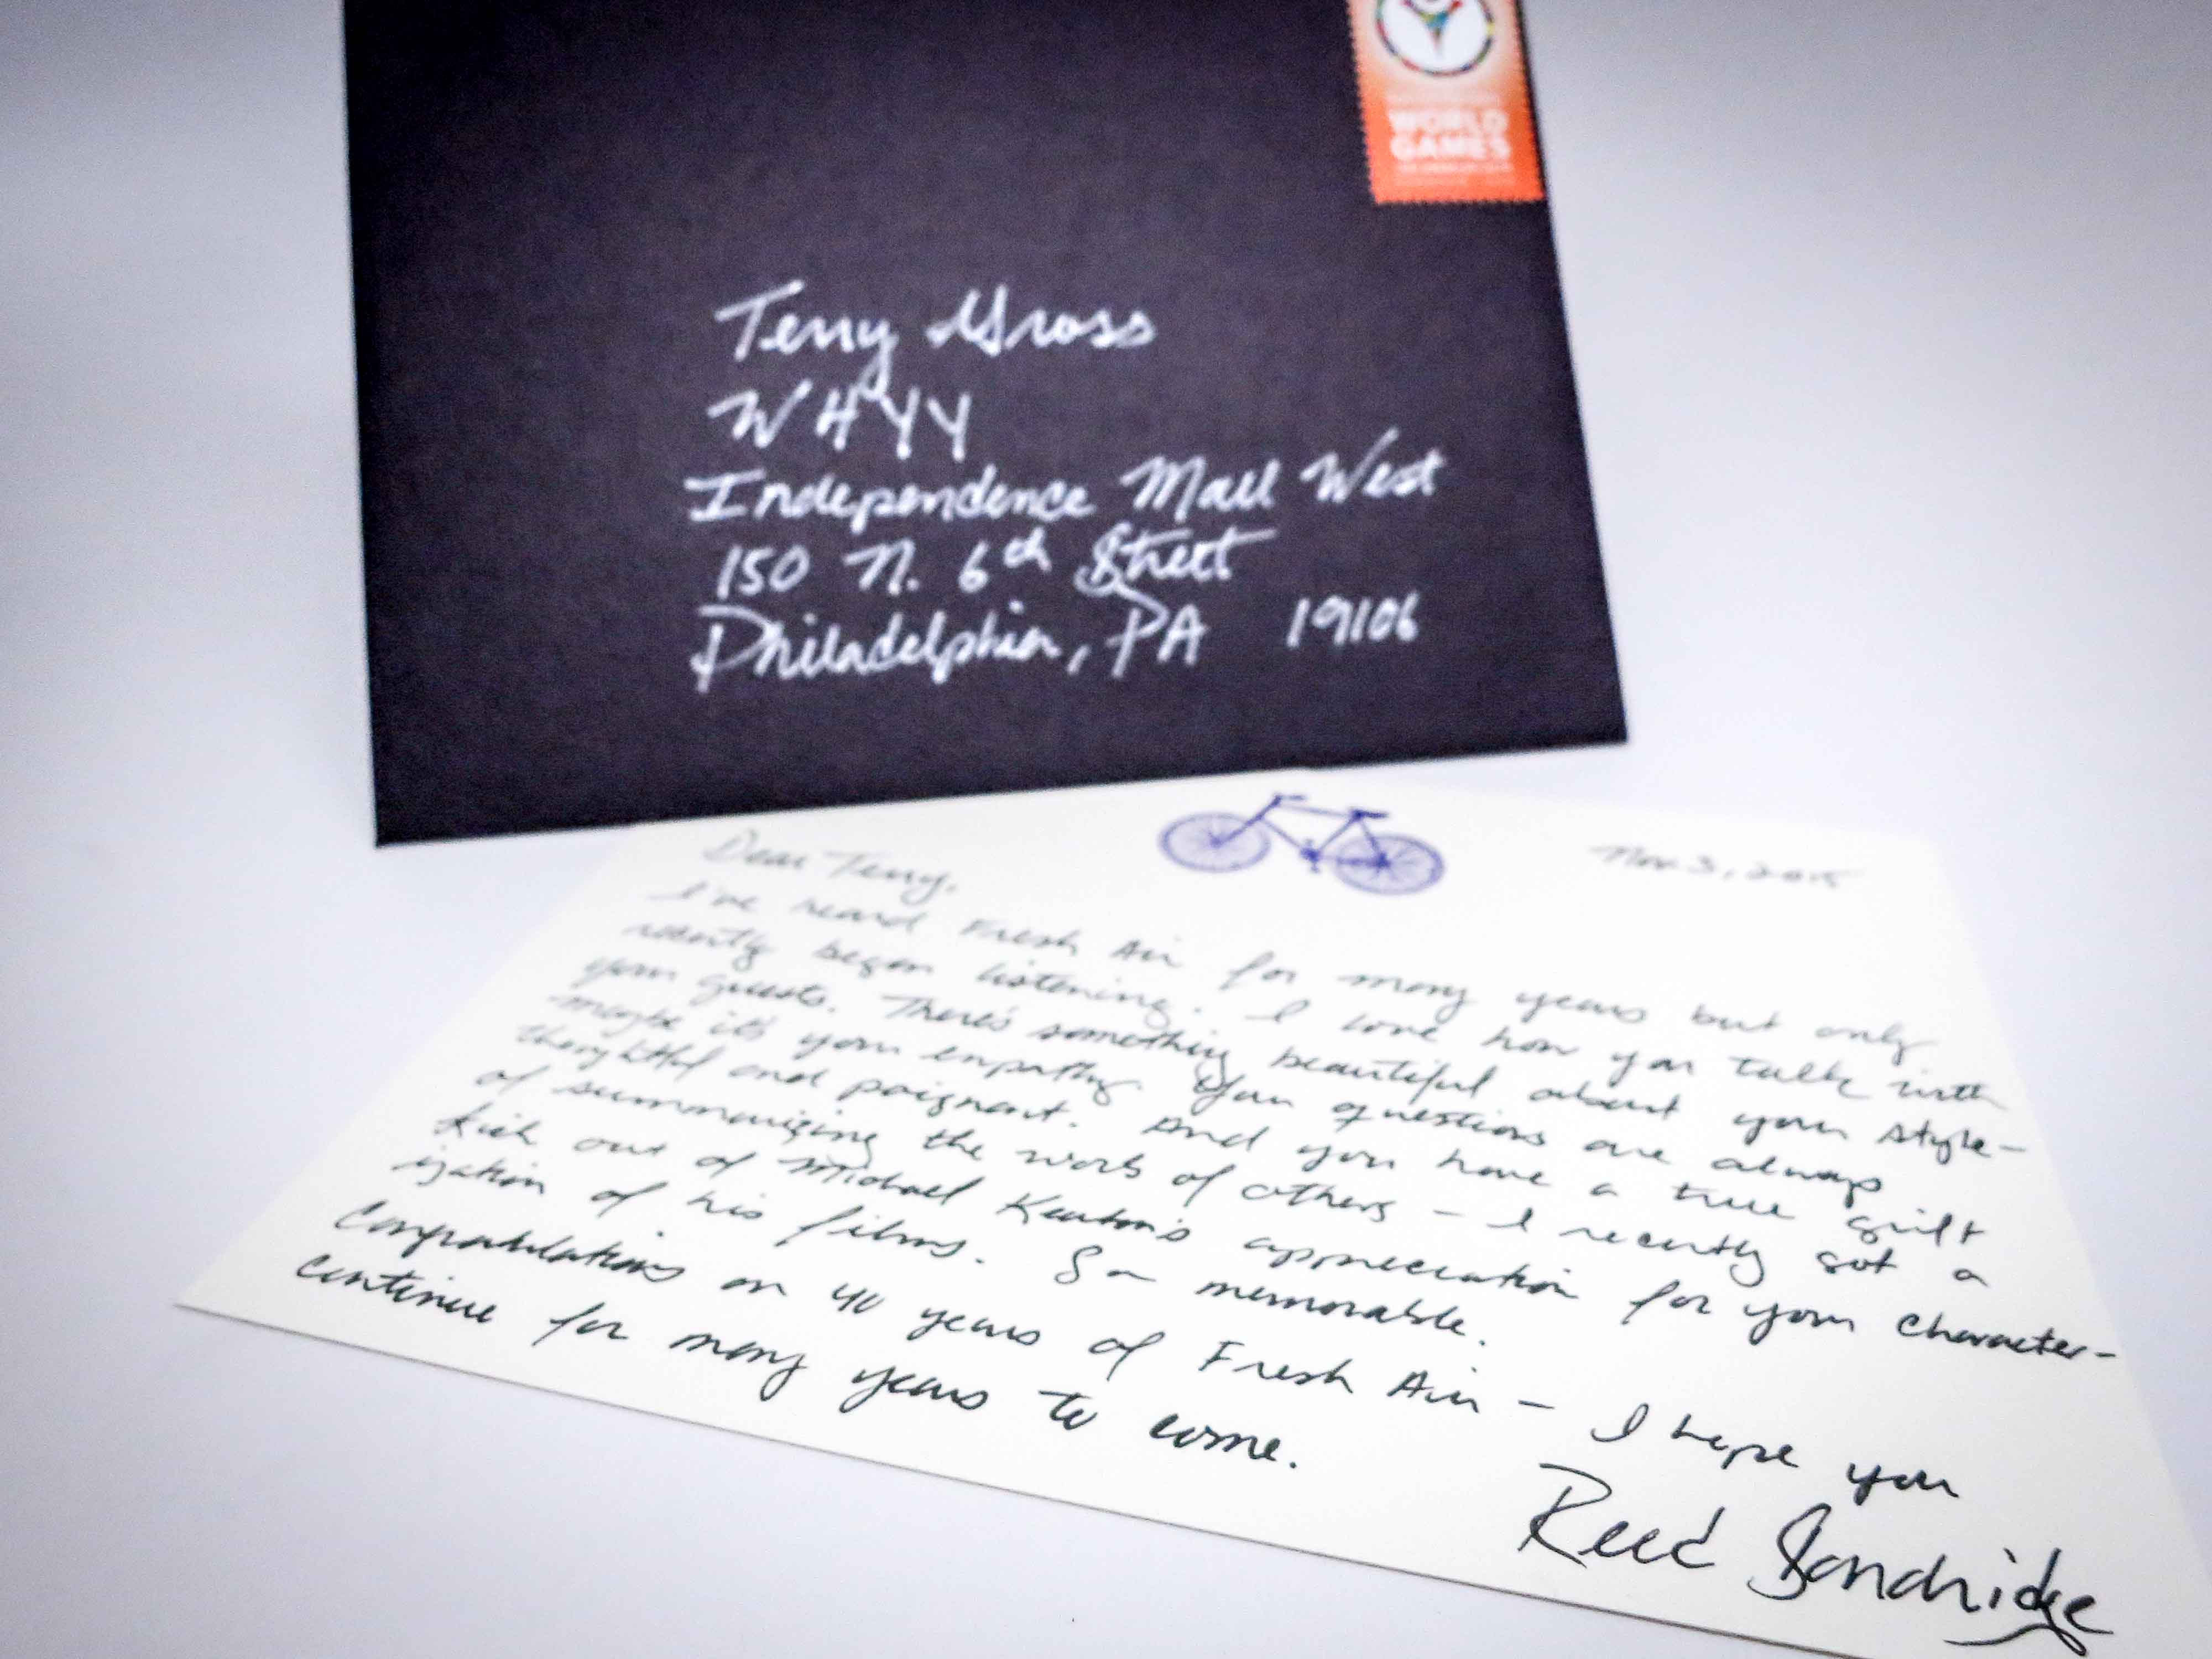 WORLD
GAMES
Terry Gross
WHYY
Independence Mall West
150 N. 6th Street
Philadelphia, PA 19106
Dear Terry,
Nov 3, 2015
I've heard Fresh Air for many years but only
recently began listening. I love how you talk with
your guests. There's something beautiful about your style-
maybe it's your empathy. Your questions are always
thoughtful and poignant. And you have a true gift
of summarizing the work of others - I recently got a
kick out of Michael Keaton's appreciation for your character-
ization of his films. So memorable.
Congratulations on 40 years of Fresh Air - I hope you
continue for many years to come.
Reed Sandridge